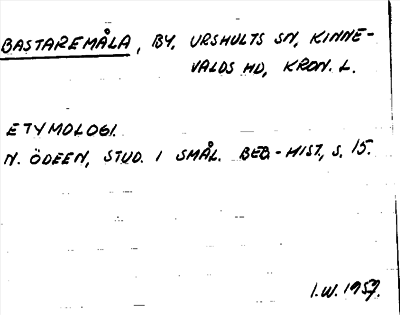 BASTAREMÅLA, BY, URSHULTS SN, KINNE-
VALDS HD, KRON. L.
ETYMOLOGI.
N. ÖDEEN, STUD. I SMÅL. BEB.-HIST., S. 15.
I.W. 1957.